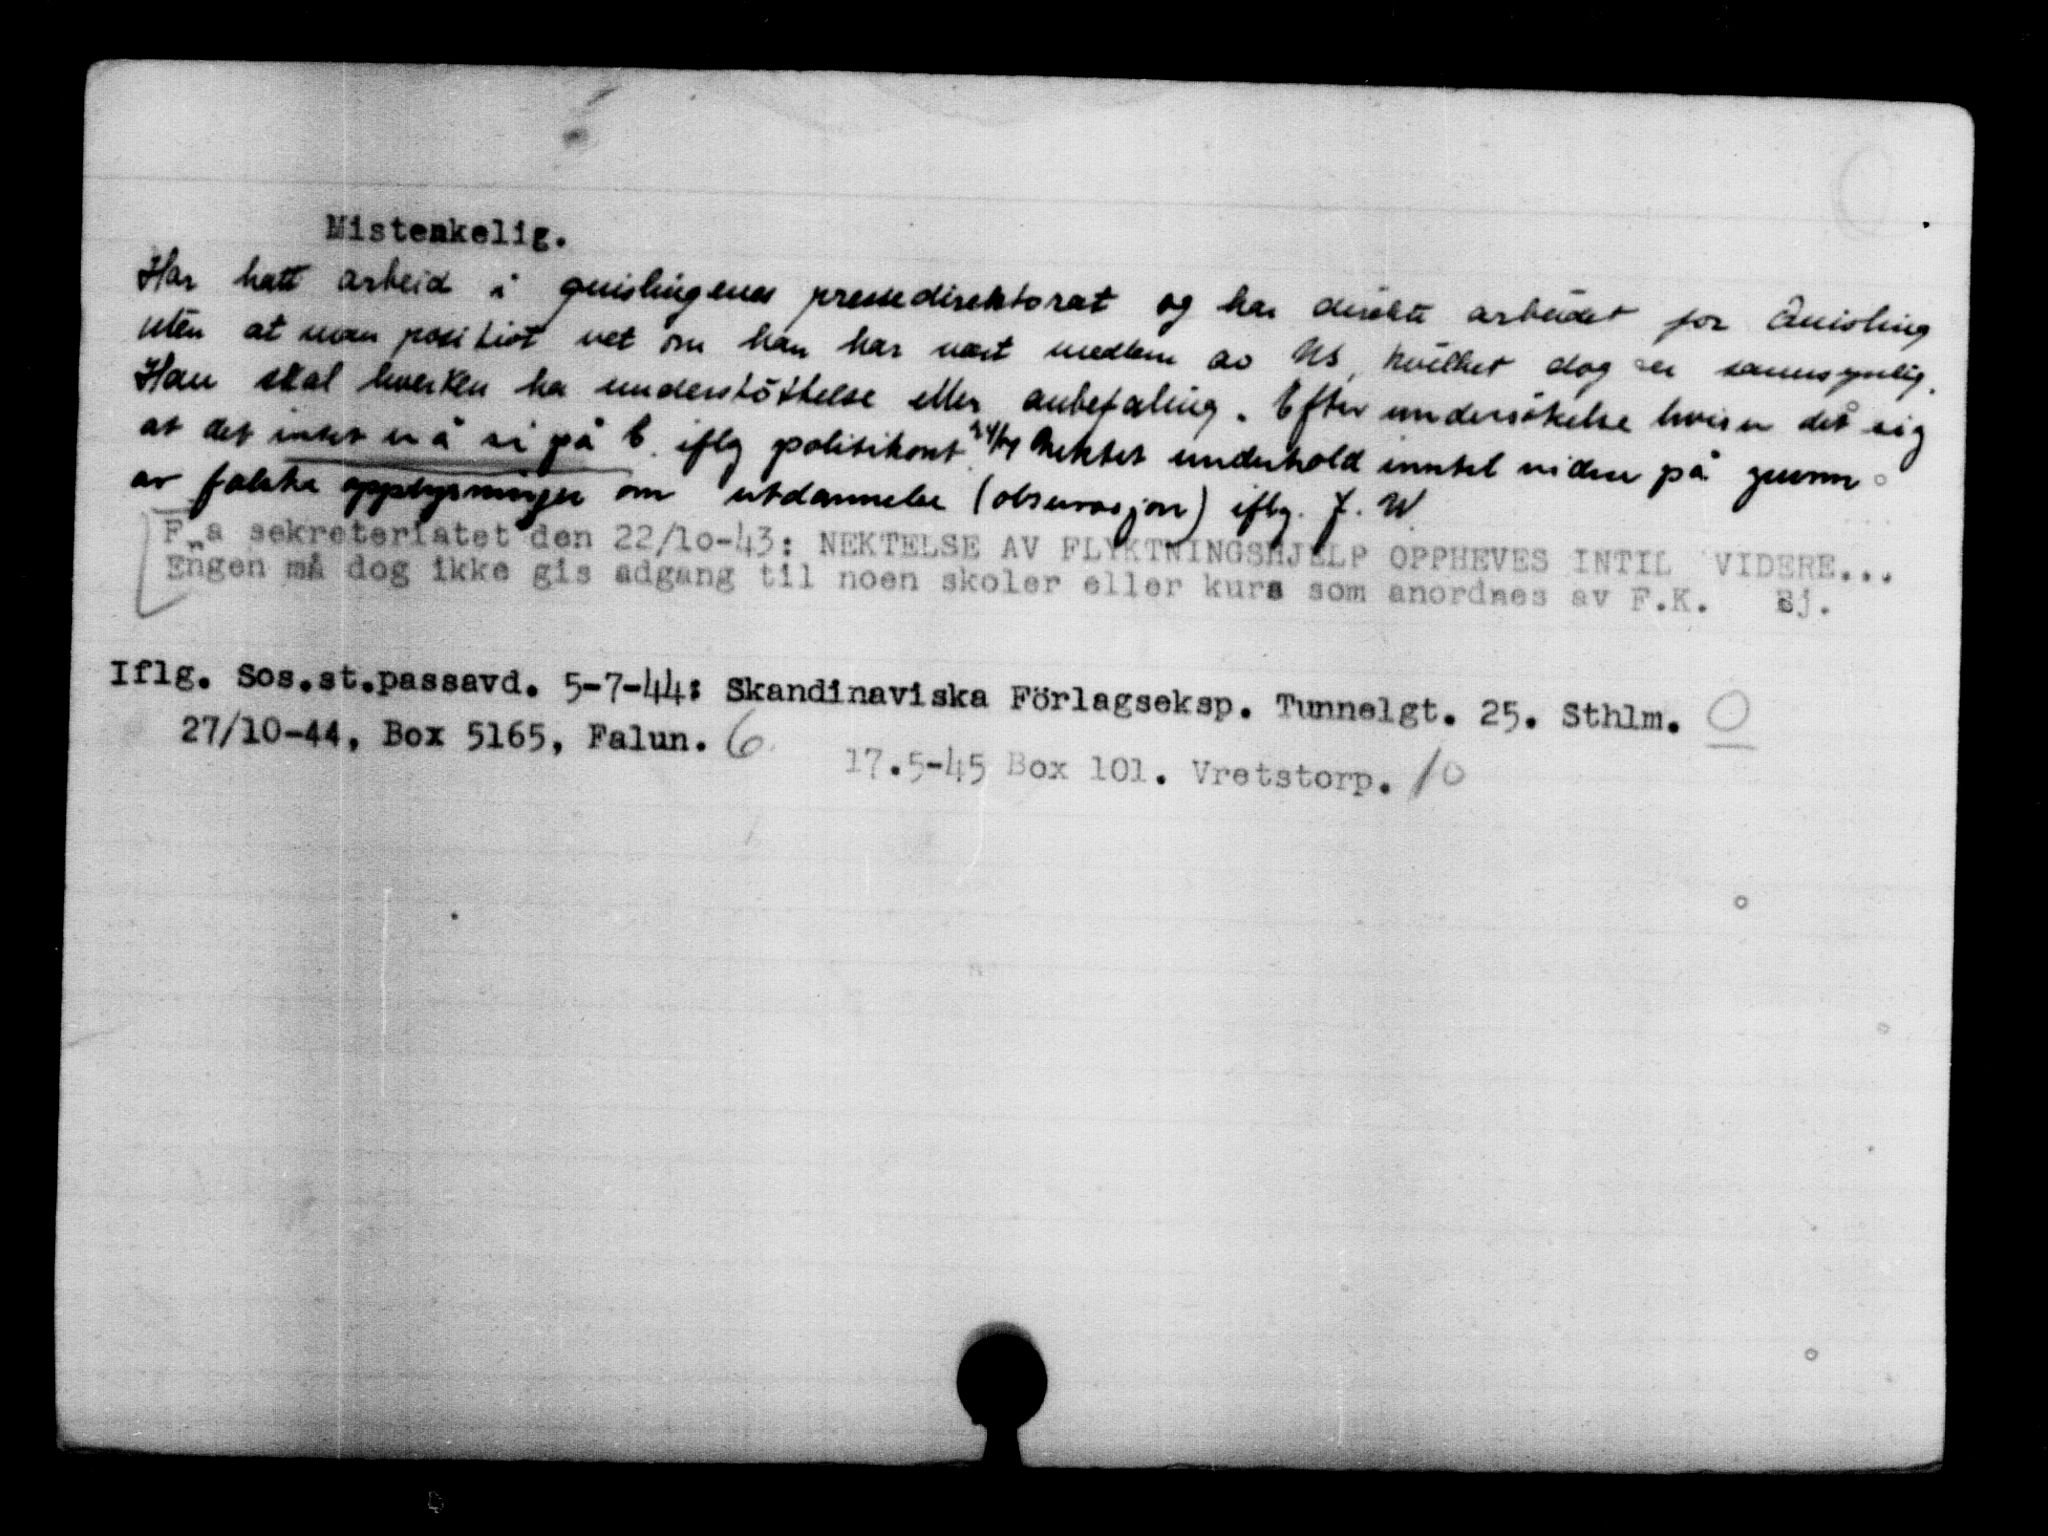 Mistenkelig.
Har hatt arbeid i quislingenes pressedirektorat og har direkte arbeidet for Quisling
uten at man positivt vet om han har vært medlem av NS, hvilket dog er sannsynlig.
Han skal hverken ha understöttelse eller anbefaling. Efter undersökelse hviser det sig
at det intet er å si på E. iflg politikont. Nektet underhold inntil videre på grunn
av falske opplysninger om utdannelse (observasjon) iflg. J. W.
F„a sekreteriatet den 22/10-43: NEKTELSE AV FLYKTNINGSHJELP OPPHEVES INTIL VIDERE...
Engen må dog ikke gis adgang til noen skoler eller kurs som anordnes av F.K. Bj.
Iflg. Sos.st.passavd. 5-7-44: Skandinaviska Förlagseksp. Tunnelgt. 25. Sthlm. O
27/10-44, Box 5165, Falun. 6
17.5-45 Box 101. Vretstorp. 10